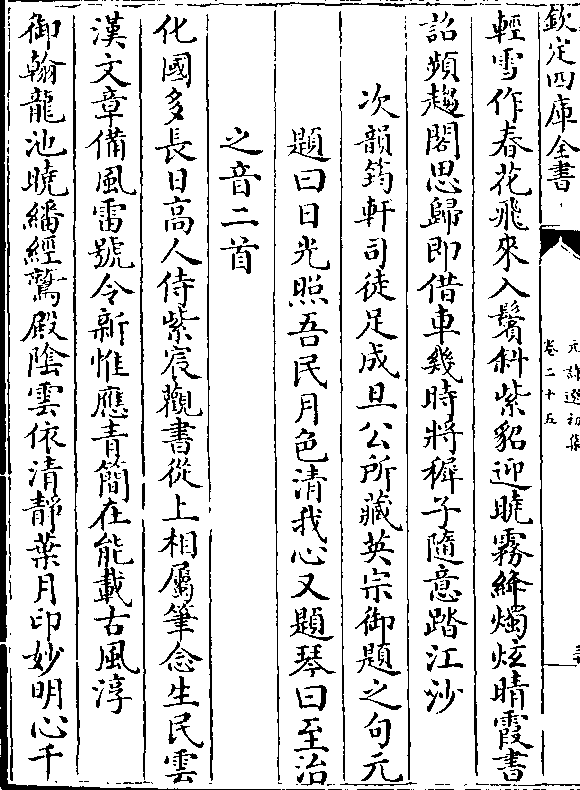 欽定四庫全書
元詩選初集
卷二十五
輕雪作春花飛來入鬢斜紫貂迎曉霧絳燭炫晴霞書
詔頻趨閣思歸即借車幾時將穉子隨意踏江沙
次韻筠軒司徒足成旦公所藏英宗御題之句元
題曰日光照吾民月色清我心又題琴曰至治
之音二首
化國多長日高人侍紫宸觀書從上相屬筆念生民雲
漢文章備風雷號令新惟應青簡在能載古風淳
御翰龍池曉繙經鷲殿陰雲依清靜葉月印妙明心千